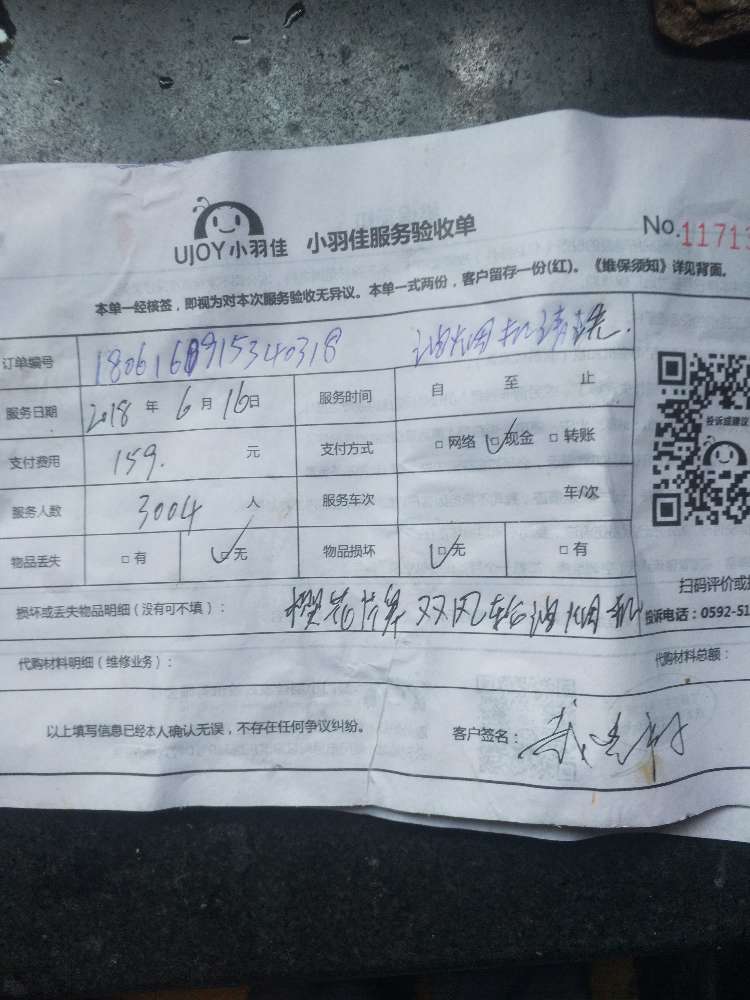 UJOY小羽佳 小羽佳服务验收单 No.11713
本单一经核签，即视为对本次服务验收无异议。本单一式两份，客户留存一份(红)。《维保须知》详见背面。
订单编号 油烟机清洗.
服务日期 2018 年 6 月 16 日 服务时间 自 至 止
支付费用 159. 元 支付方式 □ 网络 □ 现金 □ 转账
投诉或建议
服务人数 3004 人 服务车次 车/次
物品丢失 □ 有 □ 无 物品损坏 □ 无 □ 有
扫码评价或
损坏或丢失物品明细（没有可不填）： 樱花 双风轮油烟机
投诉电话：0592-51
代购材料明细（维修业务）： 代购材料总额：
以上填写信息已经本人确认无误，不存在任何争议纠纷。 客户签名：